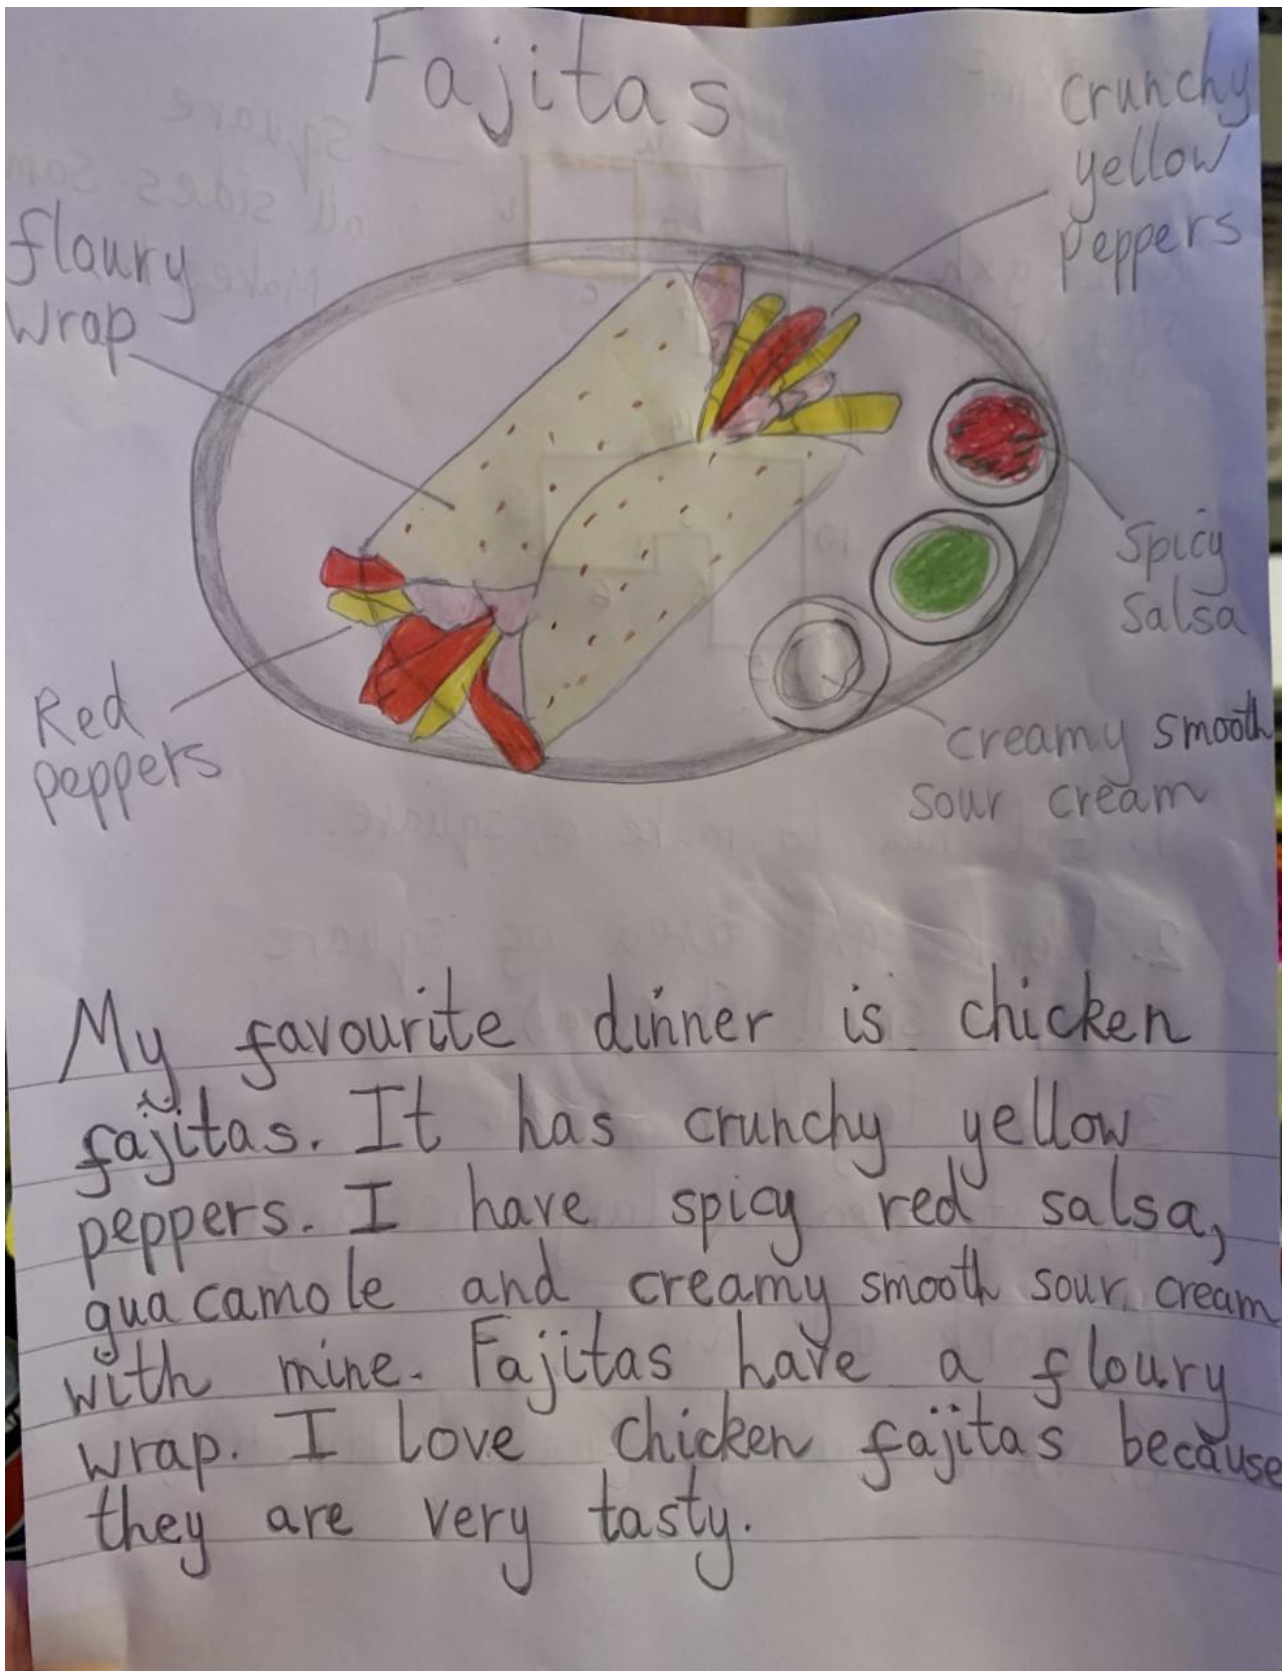 Fajitas
crunchy
yellow
peppers
floury
wrap
Spicy
salsa
Red
peppers
creamy smooth
sour cream
My favourite dinner is chicken
fajitas. It has crunchy yellow
peppers. I have spicy red salsa,
guacamole and creamy smooth sour cream
with mine. Fajitas have a floury
wrap. I love chicken fajitas because
they are very tasty.